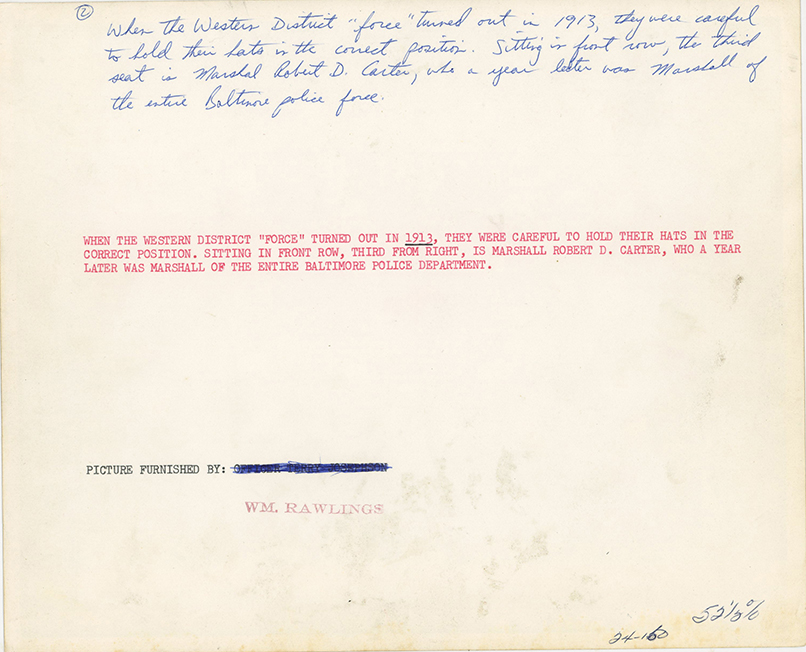 ②
When the Western District "force" turned out in 1913, they were careful
to hold their hats in the correct position. Sitting in front row, the third
seat is Marshal Robert D. Carter, who a year later was Marshall of
the entire Baltimore police force.
WHEN THE WESTERN DISTRICT "FORCE" TURNED OUT IN 1913, THEY WERE CAREFUL TO HOLD THEIR HATS IN THE
CORRECT POSITION. SITTING IN FRONT ROW, THIRD FROM RIGHT, IS MARSHALL ROBERT D. CARTER, WHO A YEAR
LATER WAS MARSHALL OF THE ENTIRE BALTIMORE POLICE DEPARTMENT.
PICTURE FURNISHED BY:
WM. RAWLINGS
52½%